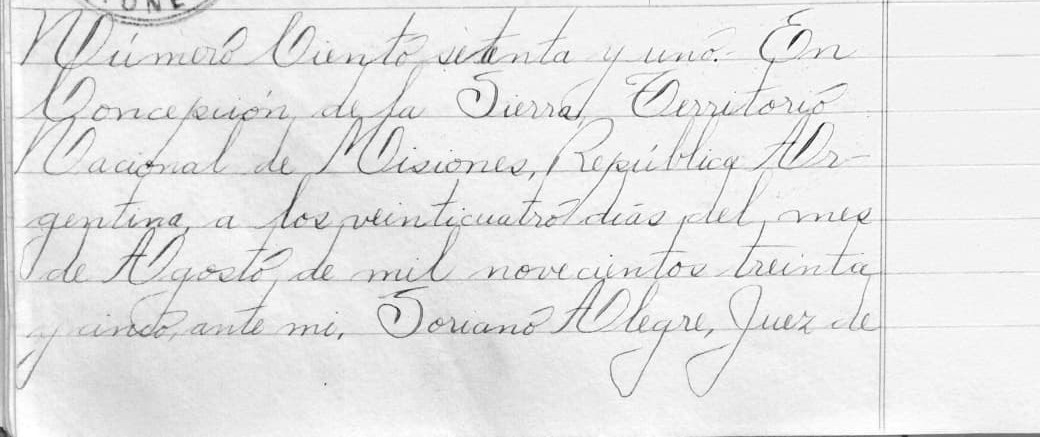 ONE
Número Ciento setenta y uno. En
Concepción de la Sierra, Territorio
Nacional de Misiones, República Ar-
gentina, a los veinticuatro días del mes
de Agosto de mil novecientos treinta
y cinco, ante mi, Soriano Alegre, Juez de